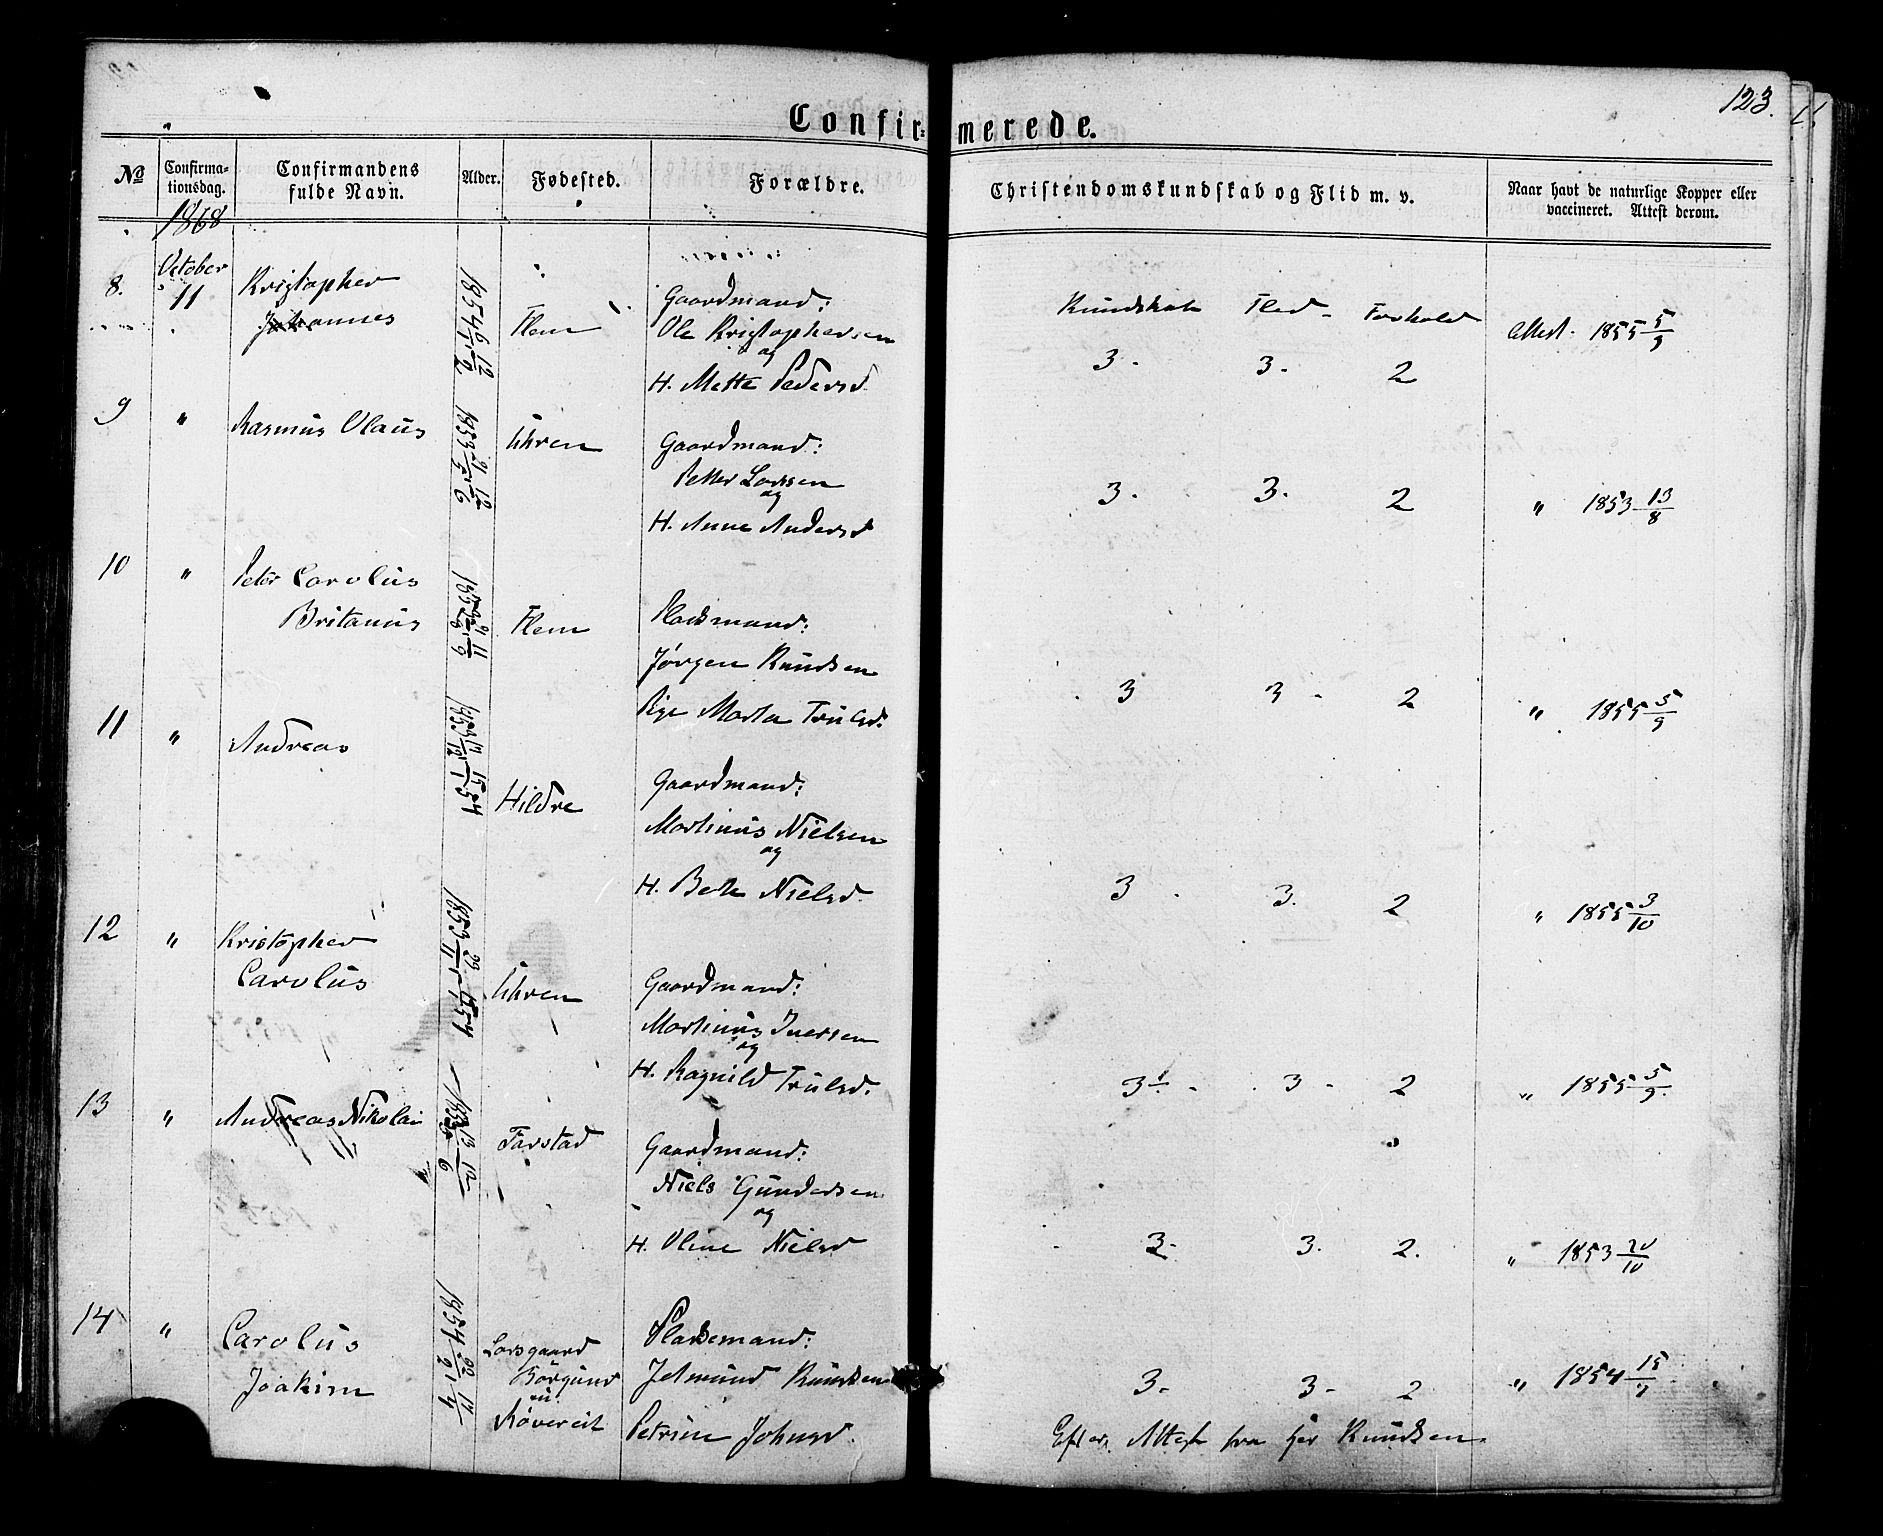 123.
Confirmerede.
No
Confirmationsdag.
Confirmandens fulde Navn.
Alder.
Fødested.
Forældre.
Christendomskundskab og Flid m. v.
Naar havt de naturlige Kopper eller vaccineret. Attest derom.
1868
8.
October
11
Kristopher
Johannes
Flem
Gaardmand:
Ole Kristophersen
og
H. Mette Pedersd
Kundskab Flid - Forhold
3 - 3 - 2
Attest - 1855 5/9
9
"
Rasmus Olaus
Uhren
Gaardmand:
Petter Larsen
og
H. Anne Andersd
3 - 3 - 2
" 1853 13/8
10
"
Peter Carolus
Britanus
Flem
Pladsmand:
Jørgen Knudsen
Pige Marta Trulsd.
3 3 - 2
" 1855 5/9
11
"
Andreas
Hildre
Gaardmand:
Martinus Nielsen
og
H. Nielsd.
3 - 3. 2
" 1855 3/10
12
"
Kristopher
Carolus
Uhren
Gaardmand:
Martinus Iversen
og
H. Ragnild Trulsd.
3 - 3 - 2
" 1855 5/9
13
"
Andreas Nikolai
Farstad
Gaardmand:
Niels Gundersen
og
H. Oline Nielsd
3 - 3. 2.
" 1853 20/10
14
"
Carolus
Joakim
1854
Borgund
Pladsemand:
Knudsen
Petrine Johnsd.
3 - 3 - 2
" 1854 15/7
Efter Attest fra Knudsen